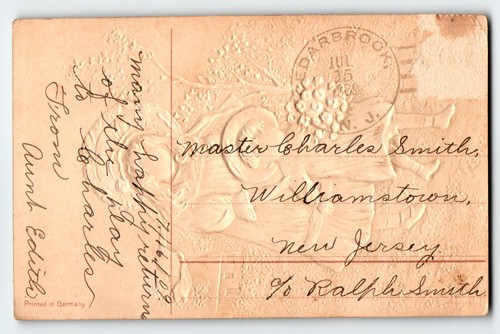 7/16/09
many happy returns
of the day
to Charles
From
Aunt Edith
CEDARBROOK,
JUL
15
N. J.
Master Charles Smith,
Williamstown,
New Jersey.
c/o Ralph Smith.
Printed in Germany